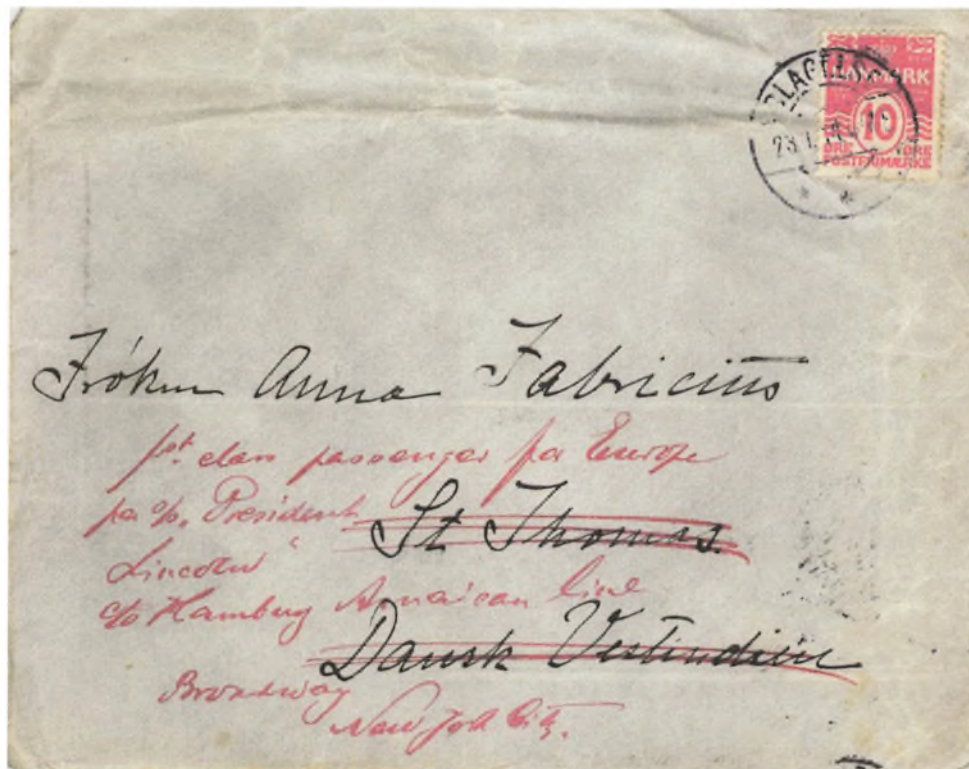 SLAGELSE
23.1.
DANMARK
10
ØRE ØRE
POSTFRIMÆRKE
Frøken Anna Fabricius
1st. class passenger for Europe
per s/s. "President
Lincoln"
St Thomas.
c/o Hamburg American line
Dansk Vestindien
Broadway
New York City.